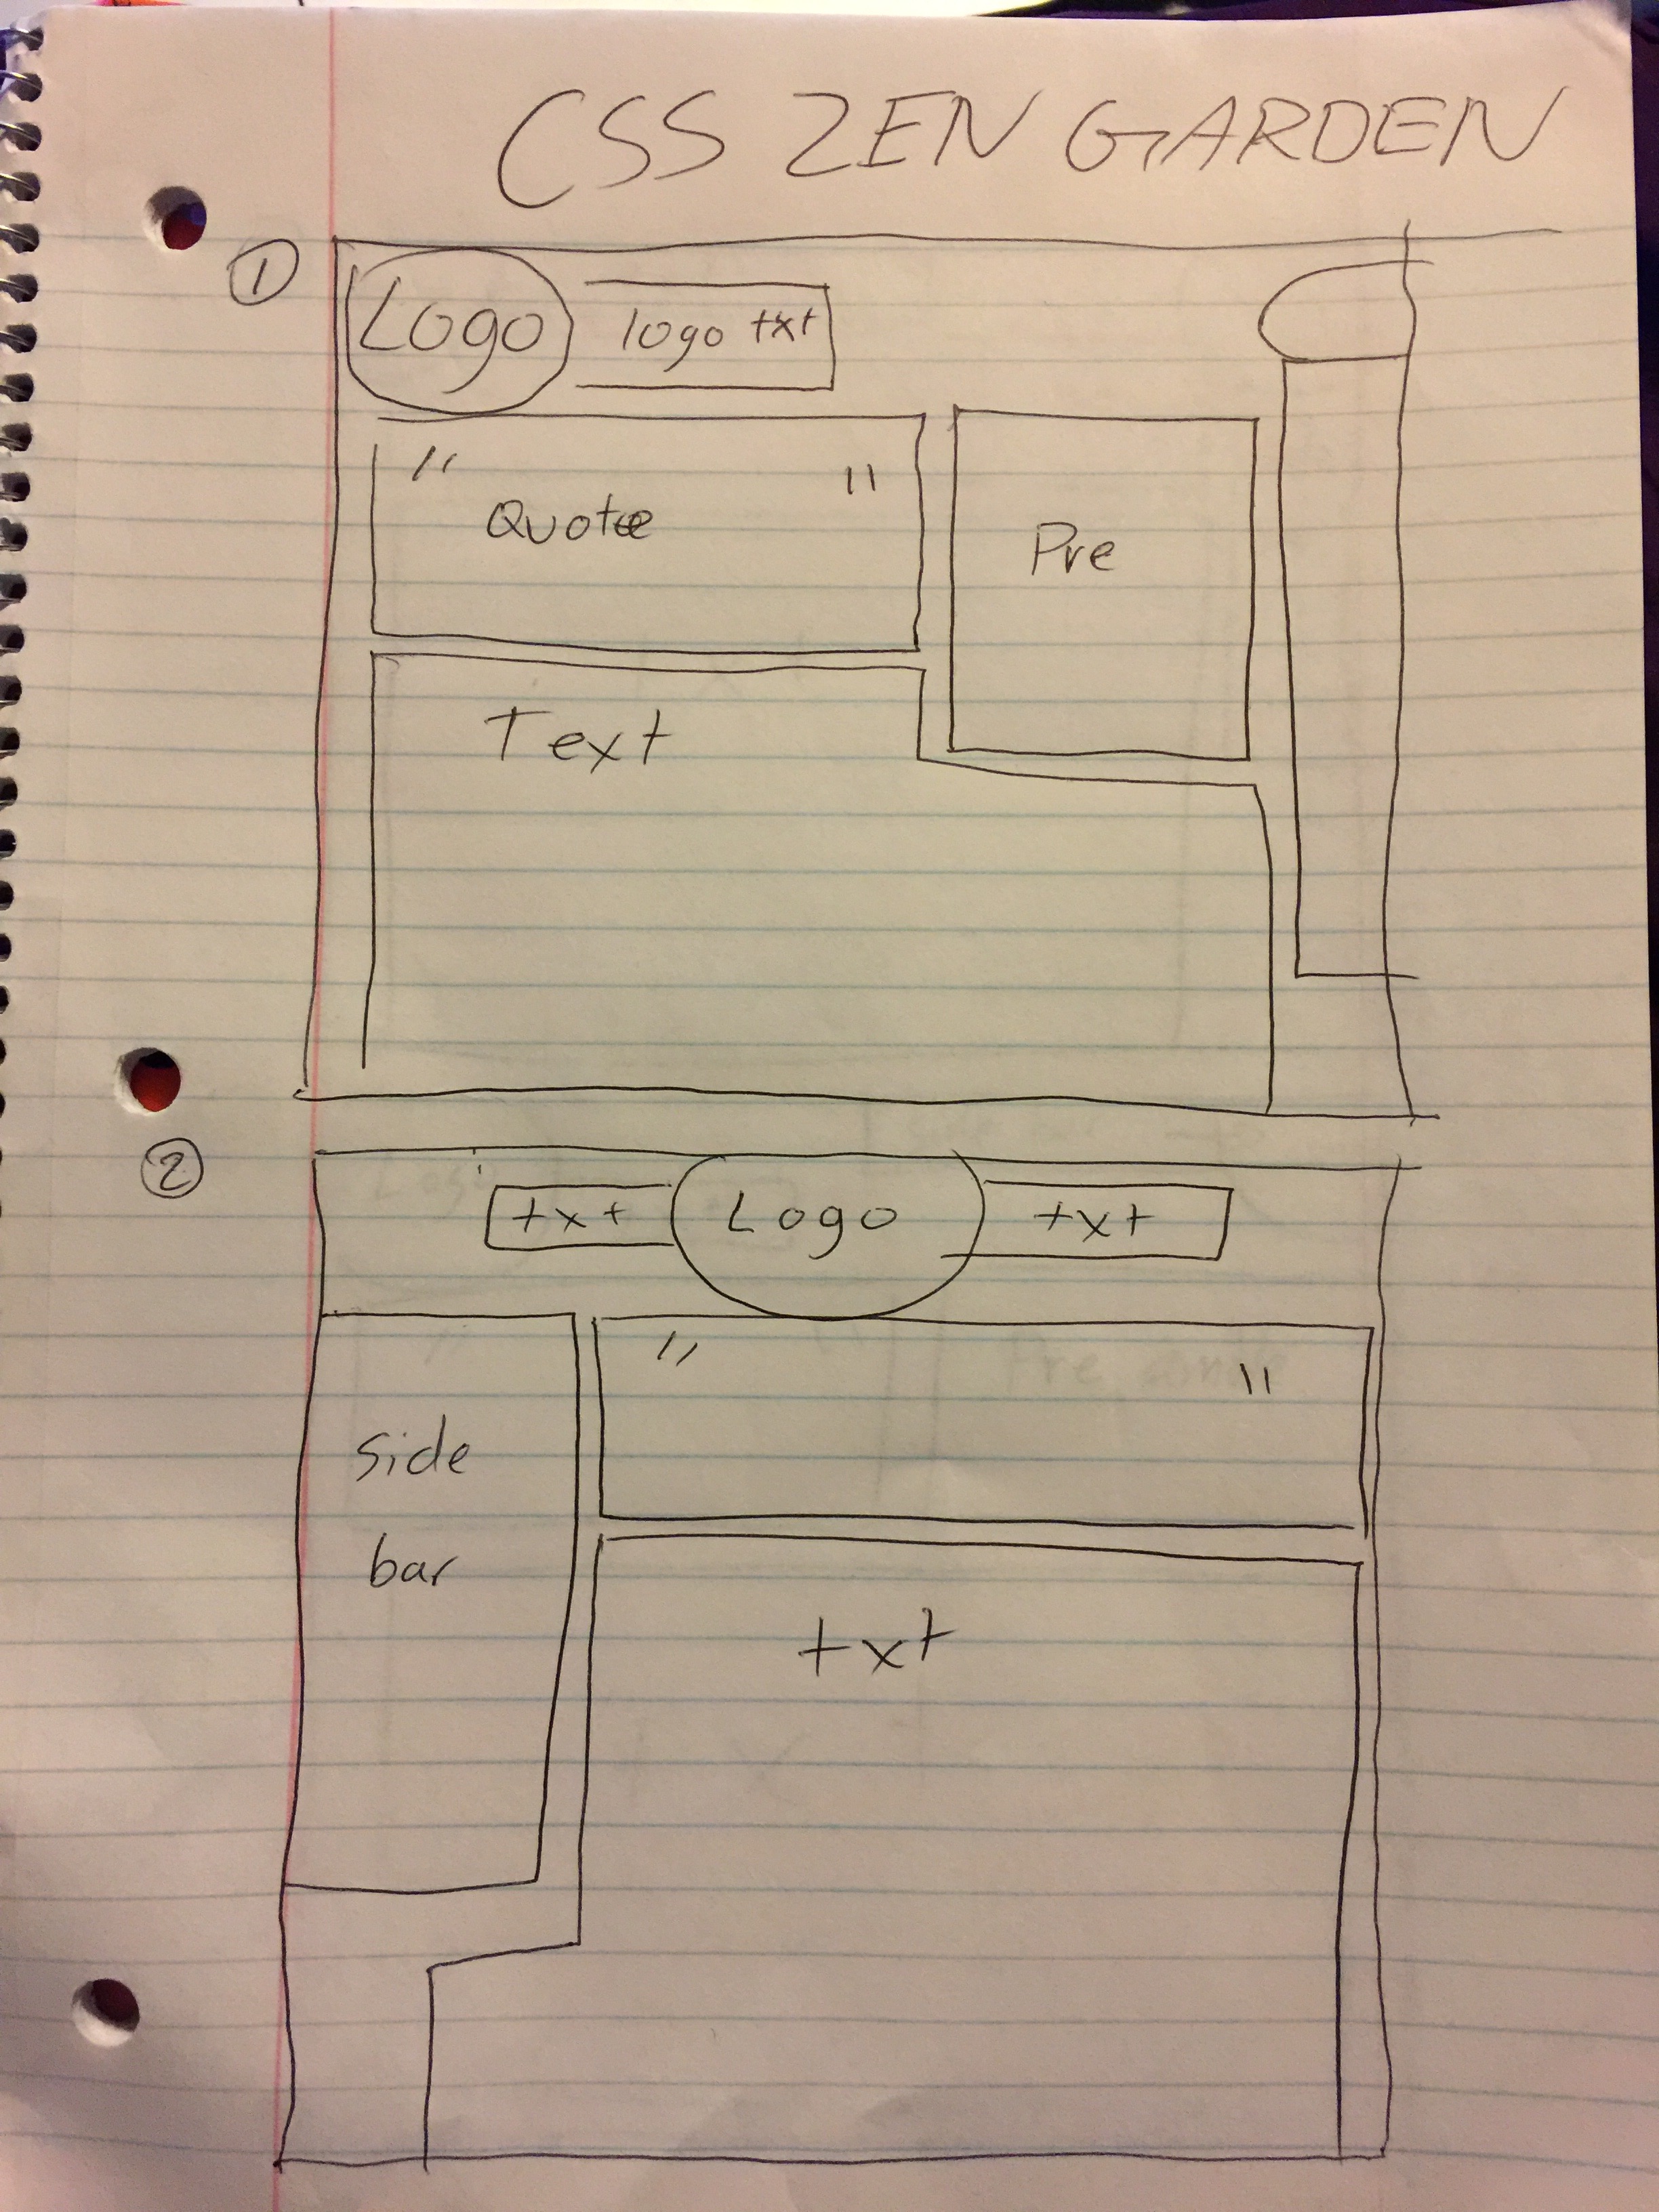 CSS ZEN GARDEN
1
Logo logo txt
" "
Quote
Pre
Text
2
txt Logo txt
" "
side
bar
txt